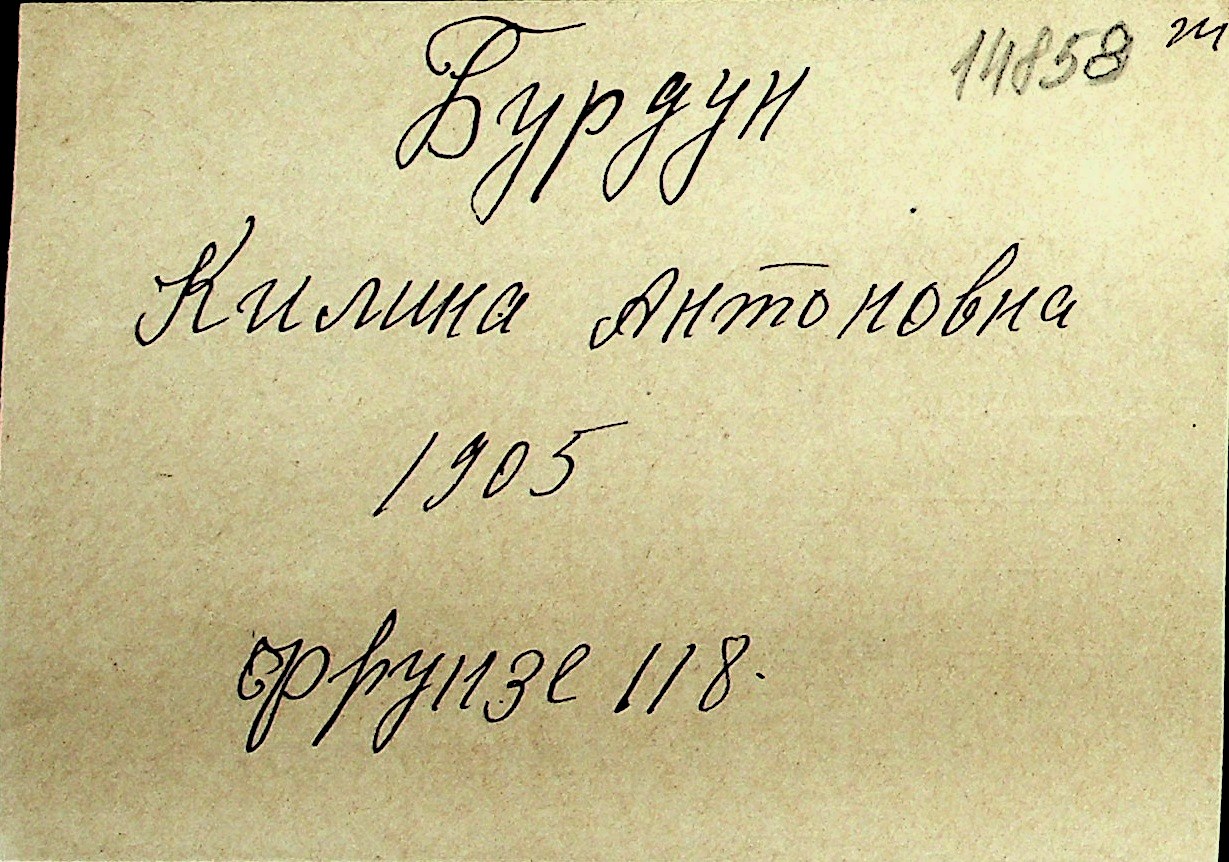 14858 ж
Бурдун
Килина Антоновна
1905
Фрунзе 118.